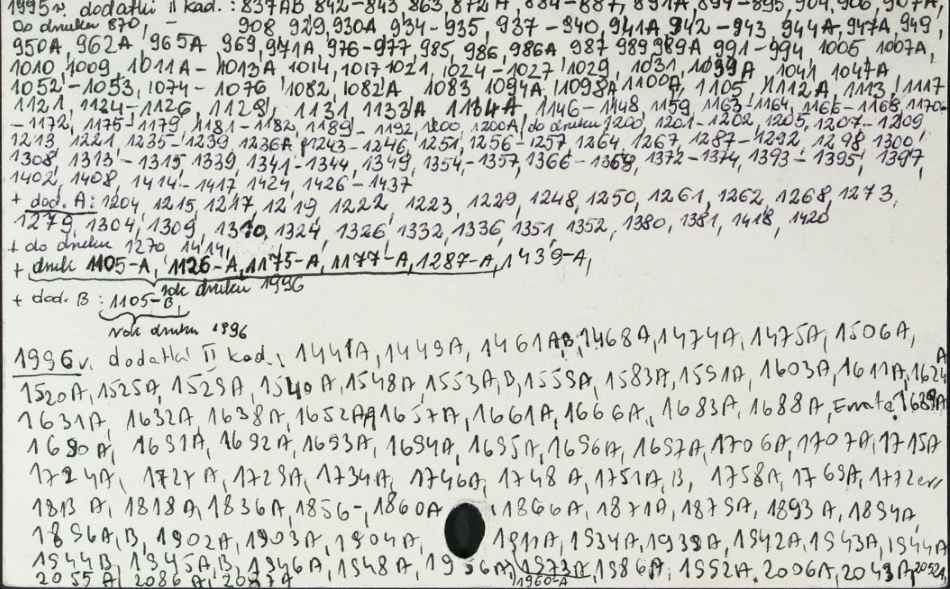 1995r. dodatki II kad.: 837AB 842-843, 863, 872A, 884-887, 891A, 894-895, 904, 906, 907A,
Do druku 870, - 908, 929, 930A, 934-935, 937-940, 941A, 942-943, 944A, 947A, 949,
950A, 962A, 965A, 969, 971A, 976-977, 985, 986, 986A, 987, 989, 989A, 991-994, 1006, 1007A,
1010, 1009, 1011A-1013A, 1014, 1017, 1021, 1024-1027, 1029, 1031, 1039A, 1041, 1047A
1052-1053, 1074-1076, 1082, 1082A, 1083, 1094A, 1098A, 1100A, 1105, 1112A, 1113, 1117
1121, 1124-1126, 1128, 1131, 1133A, 1134A, 1146-1148, 1159, 1163-1164, 1166-1168, 1170
-1172, 1175-1179, 1181-1182, 1189-1192, 1200, 1200A, do druku 1200, 1201-1202, 1205, 1207-1209,
1213, 1221, 1235-1239, 1236A, 1243-1246, 1251, 1256-1257, 1264, 1267, 1287-1292, 1298, 1300,
1308, 1313-1315, 1339, 1341-1344, 1349, 1354-1357, 1366-1369, 1372-1374, 1393-1395, 1397,
1402, 1408, 1414-1417, 1424, 1426-1437
+ dod. A: 1204, 1215, 1217, 1219, 1222, 1223, 1229, 1248, 1250, 1261, 1262, 1268, 1273,
1279, 1304, 1309, 1310, 1324, 1326, 1332, 1336, 1351, 1352, 1380, 1381, 1418, 1420
+ do druku 1270, 1414,
+ druk 1105-A, 1126-A, 1175-A, 1177-A, 1287-A, 1439-A,
rok druku 1996
+ dod. B: 1105-B,
rok druku 1996
1996r. dodatki II kad., 1441A, 1449A, 1461AB, 1468A, 1474A, 1475A, 1506A,
1520A, 1525A, 1529A, 1540A, 1548A, 1553A,B, 1559A, 1583A, 1591A, 1603A, 1611A, 1624A
1631A, 1632A, 1638A, 1652A, 1657A, 1661A, 1666A, 1683A, 1688A, Errata, 1689A
1690A, 1691A, 1692A, 1693A, 1694A, 1695A, 1696A, 1697A, 1706A, 1707A, 1715A
1724A, 1727A, 1729A, 1734A, 1746A, 1748A, 1751A, B, 1758A, 1769A, 1772
1813A, 1818A, 1836A, 1856-, 1860A, 1866A, 1871A, 1879A, 1893A, 1894A,
1896A,B, 1902A, 1903A, 1904A, 1911A, 1934A, 1939A, 1942A, 1943A, 1944A
1944B, 1945A,B, 1946A, 1948A, 1956A, 1973A, 1986A, 1992A, 2006A, 2043A, 2052A,
1960-A
2055A, 2086A, 2087A